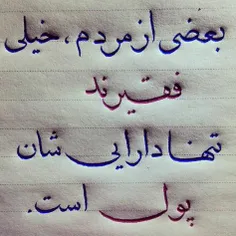 بعضی از مردم، خیلی
فقیرند
تنها دارایی شان
پول است.